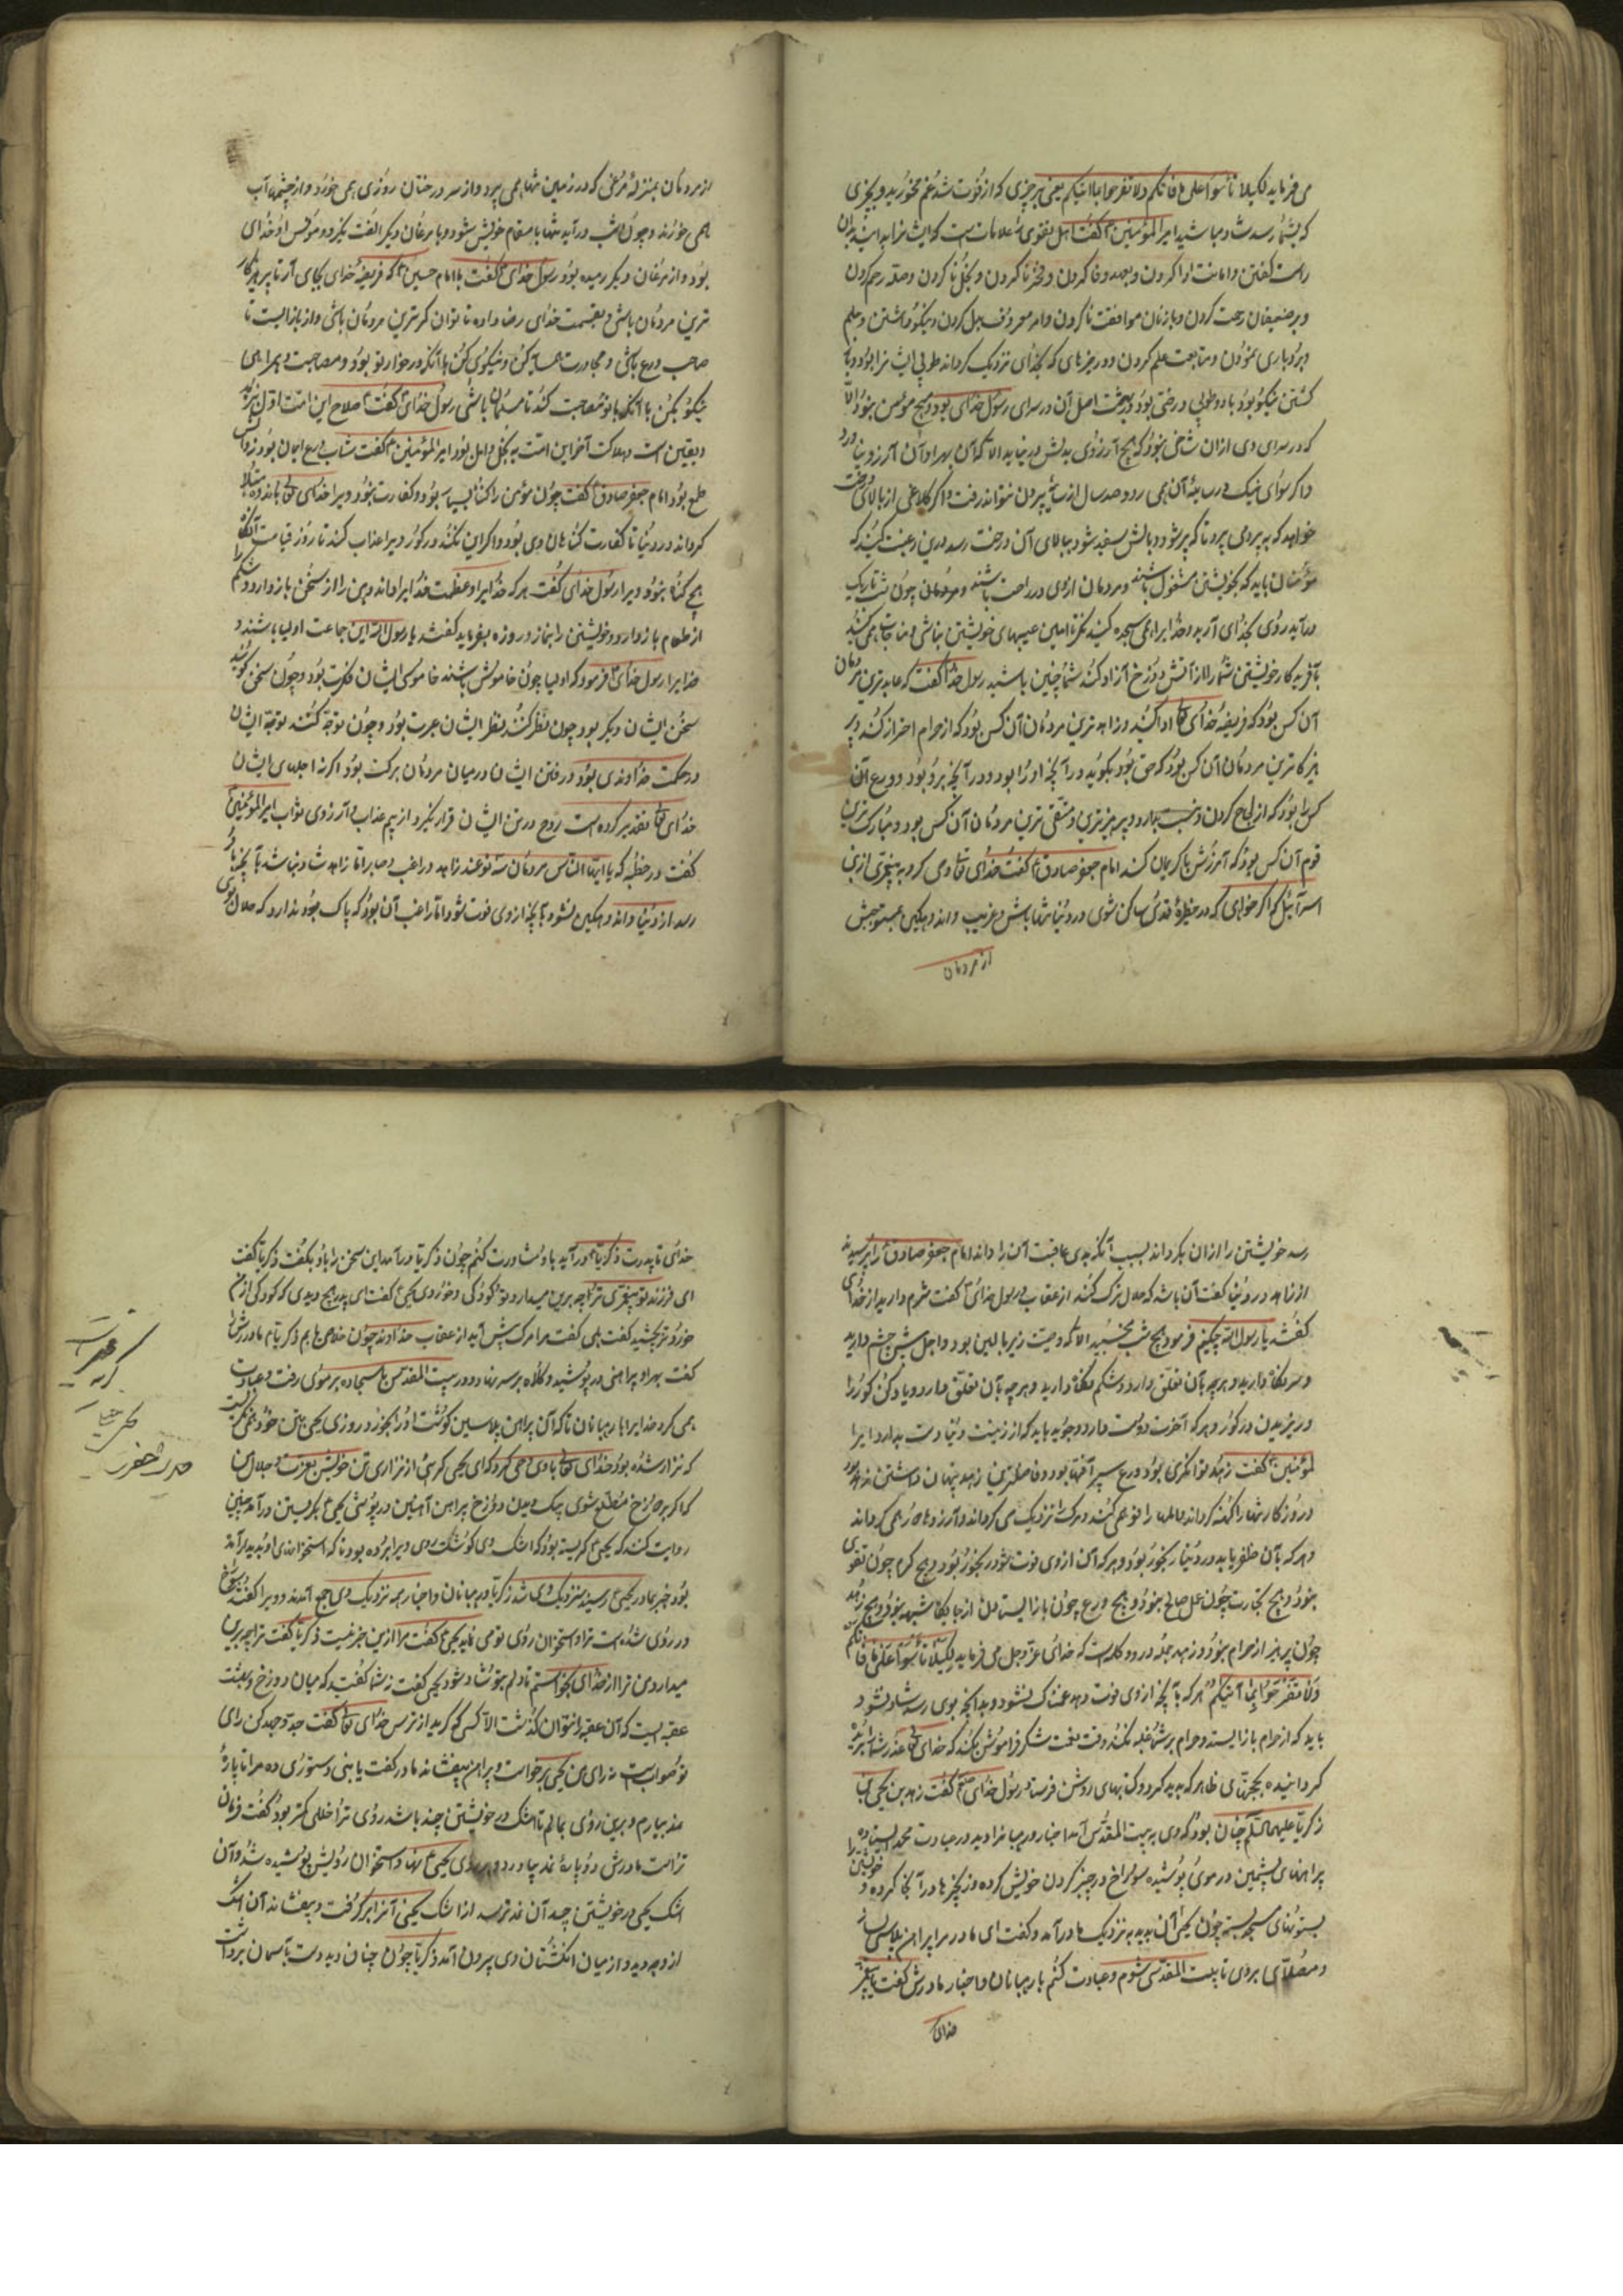 می فرماید لکیلا تأسوا علی ما فاتکم ولا تفرحوا بما آتیکم یعنی بهر چیزی که از فوت شد غم مخورید و بچیزی
که بشما رسد شاد مباشید امیرالمؤمنین گفت اهل تقوی را علامات است که ایشانرا بدان
راست گفتن و امانت ادا کردن و بعهد وفا کردن و فخر ناکردن و بخل ناکردن و صله رحم کردن
و بر ضعیفان رحمت کردن و با زنان موافقت ناکردن و امر معروف بذل کردن و نیکو داشتن و حلم
و بردباری نمودن و متابعت علم کردن و در چیزهای که بخدای نزدیک گرداند طوبی ایشانرا بود و باز
گشتن نیکو بود و طوبی درختی بود در بهشت اصل آن در سرای رسول خدای بود و هیچ مومن نبود الا
که در سرای وی از آن شاخی بود که هیچ آرزوی بدلش در نیاید الا که آن بهر او آن آرزو بیارد
و اگر سواری نیک در سایه آن همی رود صد سال از سایه بیرون نتواند رفت و اگر کلاغی از بالای درخت
خواهد که بپرد می پرد تا که پیر شود و بالش سفید شود ببالای آن درخت رسد درین رغبت کنید که
مؤمنان باید که بخویشتن مشغول باشند و مردمان از وی در راحت باشند و مردمان چون شب تاریک
درآید روی بخدای آرید و خدایرا همی سجده کنید
بآفریدگار خویشتن شما را از آتش دوزخ آزاد کند شما چنین باشید رسول خدا گفت که عابدترین مردمان
آن کس بود که فریضه خدای تعالی ادا کند و زاهدترین مردمان آن کس بود که از حرام احتراز کند و پر
هیزکارترین مردمان آن کس بود که حق بود بگوید در آنچه او را بود و در آنچه برو بود و ورع آن
کس بود که از
قوم آن کس بود که آمیزش با کریمان کند امام جعفر صادق گفت خدای تعالی وحی کرد به پیغمبری از بنی
اسرائیل که اگر خواهی که در حظیره قدس ساکن شوی در دنیا تنها باش و غریب و اندوهگین مستوحش
از مردمان
از مردمان بمنزله مرغی که در زمین تنها همی پرد و از سر درختان روزی همی خورد و از چشمها آب
همی خورد و چون شب درآید تنها با مقام خویش شود و با مرغان دیگر الفت نگیرد و مونس او خدای
بود و از مرغان دیگر رمیده بود رسول خدای گفت با امام حسین که فریضه خدای بجای آر تا پرهیزکار
ترین مردمان باشی و بقسمت خدای رضا داده تا توانگرترین مردمان باشی و از بازایست تا
صاحب ورع باشی و مجاورت همسایه کن و نیکوی کن با آنکه در جوار تو بود و مصاحبت و همراهی
نیکو بکن با آنکه با تو مصاحبت کند تا مسلمان باشی رسول خدای گفت صلاح این امت اول بزهد
و یقین است و هلاکت آخر این امت به بخل و امل بود امیرالمؤمنین گفت ثبات ورع ایمان بود زوالش
طمع بود امام جعفر صادق گفت چون مؤمن را گناه بسیار بود و کفارت نبود ویرا خدای تعالی باندوه مبتلا
گرداند در دنیا تا کفارت گناهان وی بود و اگر این نکند در گور ویرا عذاب کند تا روز قیامت آنگاه
هیچ گناه نبود ویرا رسول خدای گفت هر که خدایرا و عظمت خدایرا داند دهن را از سخن باز دارد و شکم را
از طعام باز دارد و خویشتن را بنماز و روزه بفرماید گفتند یا رسول الله این جماعت اولیا باشند
خدایرا رسول خدای فرمود که اولیا چون خاموش باشند خاموشی ایشان فکرت بود و چون سخن گویند
سخن ایشان ذکر بود چون نظر کنند نظر ایشان عبرت بود و چون توجه کنند توجه ایشان
در حکمت خداوندی بود و رفتن ایشان در میان مردمان برکت بود اگر نه اجلهای ایشان
خدای تعالی تقدیر کرده است روح در تن ایشان قرار نگیرد از بیم عذاب و آرزوی ثواب امیرالمؤمنین
گفت در خطبه که یا ایها الناس مردمان سه نوعند زاهد و راغب و صابر اما زاهد شاد نباشد بآنچه باو
رسد از دنیا و اندوهگین نشود بآنچه از وی فوت شود اما راغب آن بود که باک نبود ندارد که حلال بوی
رسد خویشتن را از آن بگرداند بسبب آنکه بدی عاقبت آن را داند امام جعفر صادق را پرسیدند
از زاهد در دنیا گفت آن باشد که حلال ترک کند از عقاب و رسول خدای گفت شرم دارید از خدای
گفتند یا رسول الله چکنیم فرمود هیچ شب نخسبید الا که وصیت زیر بالین بود و اجل پیش چشم دارید
و سر نگاه دارید و هرچه بآن تعلق دارد و شکم نگاه دارید و هر چه بآن تعلق دارد و یاد کن گور را
و ریزیدن در گور و هر که آخرت دوست دارد و جوید باید که از زینت دنیا دست بدارد امیرا
لمؤمنین گفت زهد توانگری بود و ورع سپر آفتها بود و فاضلترین زهد پنهان داشتن زهد بود
و روزگار تنها را کهنه گرداند و املها را نو همی کند و مرگ را نزدیک می گرداند و آرزوها دور همی گرداند
و هر که بآن ظفر یابد در دنیا رنجور بود و هر که آن از وی فوت شود رنجور بود و هیچ کرم چون تقوی
نبود و هیچ تجارت چون عمل صالح نبود و هیچ ورع چون بازایستادن از جایگاه شبهه نبود و هیچ زهد
چون پرهیز از حرام نبود و زهد جمله در دو کلمه است که خدای عز و جل می فرماید لکیلا تأسوا علی ما فاتکم
ولا تفرحوا بما آتیکم هر که بآنچه از وی فوت شود غمناک نشود و بدانچه بوی رسد شاد نشود
باید که از حرام بازایستد و حرام بر شما غلبه نکند وقت نعمت شکر فراموش نکند که خدای تعالی عذر شما
گردانیده بحجتهای ظاهر که پدید کرد و کتابهای روشن فرستاد رسول خدای صلعم گفت زهد بن یحیی بن
زکریا علیهما السلام چنان بود که وی به بیت المقدس آمد احبار و رهبانرا دید در عبادت
پیراهنهای پشمین در موی پوشیده سوراخ در چنبر گردن خویش کرده و زنجیرها در آنجا کرده و خویشتن را
بستونهای مسجد بسته چون یحیی آن بدید به نزدیک مادر آمد و گفت ای مادر مرا پیراهن پلاسی بساز
و مصلای بروی تا بیت المقدس شوم و عبادت کنم با رهبانان و احبار مادرش گفت تا پیغمبر
خدای
خدای تا پدرت زکریا درآید با او مشاورت کنم چون زکریا درآمد این سخن را با او بگفت زکریا گفت
ای فرزند تو پیغمبری ترا چه برین میدارد و تو کودکی و خوردی یحیی گفت ای پدر هیچ دیدی که کودکی از من
خوردتر بچشید گفت بلی گفت مرا مرگ پیش آید از عقاب خداوند چون خلاص یابم زکریا مادرش را
گفت بهر او پیراهنی در پوشید و کلاه بر سر نهاد و در بیت المقدس با سجاده بر موی رفت و عبادت
همی کرد خدایرا با رهبانان تا که آن پیراهن پلاسین گوشت او را بخورد و روزی یحیی بتن خود همی نگریست
که نزار شده بود خدای تعالی باو وحی کرد که ای یحیی گریه‌ی از نزاری تن خویش بعزت و جلال من
که اگر بر دوزخ مطلع شوی پیراهن آهنین در پوشی یحیی بگریستن درآمد چنین
روایت کنند که یحیی گریسته بود که اشک وی گوشت روی ویرا برده بود تا که استخوانهای او پدید آمد
بود خبر بمادر یحیی رسید بنزدیک وی شد زکریا و رهبانان و احبار همه نزدیک وی جمع آمدند و ویرا گفتند
در روی شده است ترا و استخوان روی تو می نماید یحیی گفت مرا ازین خبر نیست زکریا گفت ترا چه برین
میدارد من ترا از خدای بخواستم تا دلم بتو شاد شود یحیی گفت نه شما گفتید که میان دوزخ و بهشت
عقبه‌ایست که آن عقبه را نتوان گذشت الا کسی که گرید از ترس خدای تعالی گفت جد و جهد کن رای
تو صوابست نه رای من یحیی برخواست و پیراهن بیفشاند مادر گفت یا بنی دستوری ده مرا تا پارهٔ
نمد بیارم و برین روی بمالم تا اشک خویشتن چند باشد روی ترا خللی کمتر بود گفت فرمان
تراست مادرش دو پارهٔ نمد بیاورد و بر روی یحیی نهاد و استخوان رویش پوشیده شد و آن
اشک یحیی در خویشتن چید آن نمد تر شد از اشک یحیی آنرا برگرفت و بیفشاند آن اشک
از وچید و از میان انگشتان وی بیرون آمد زکریا چون چنان دید دست بآسمان برداشت